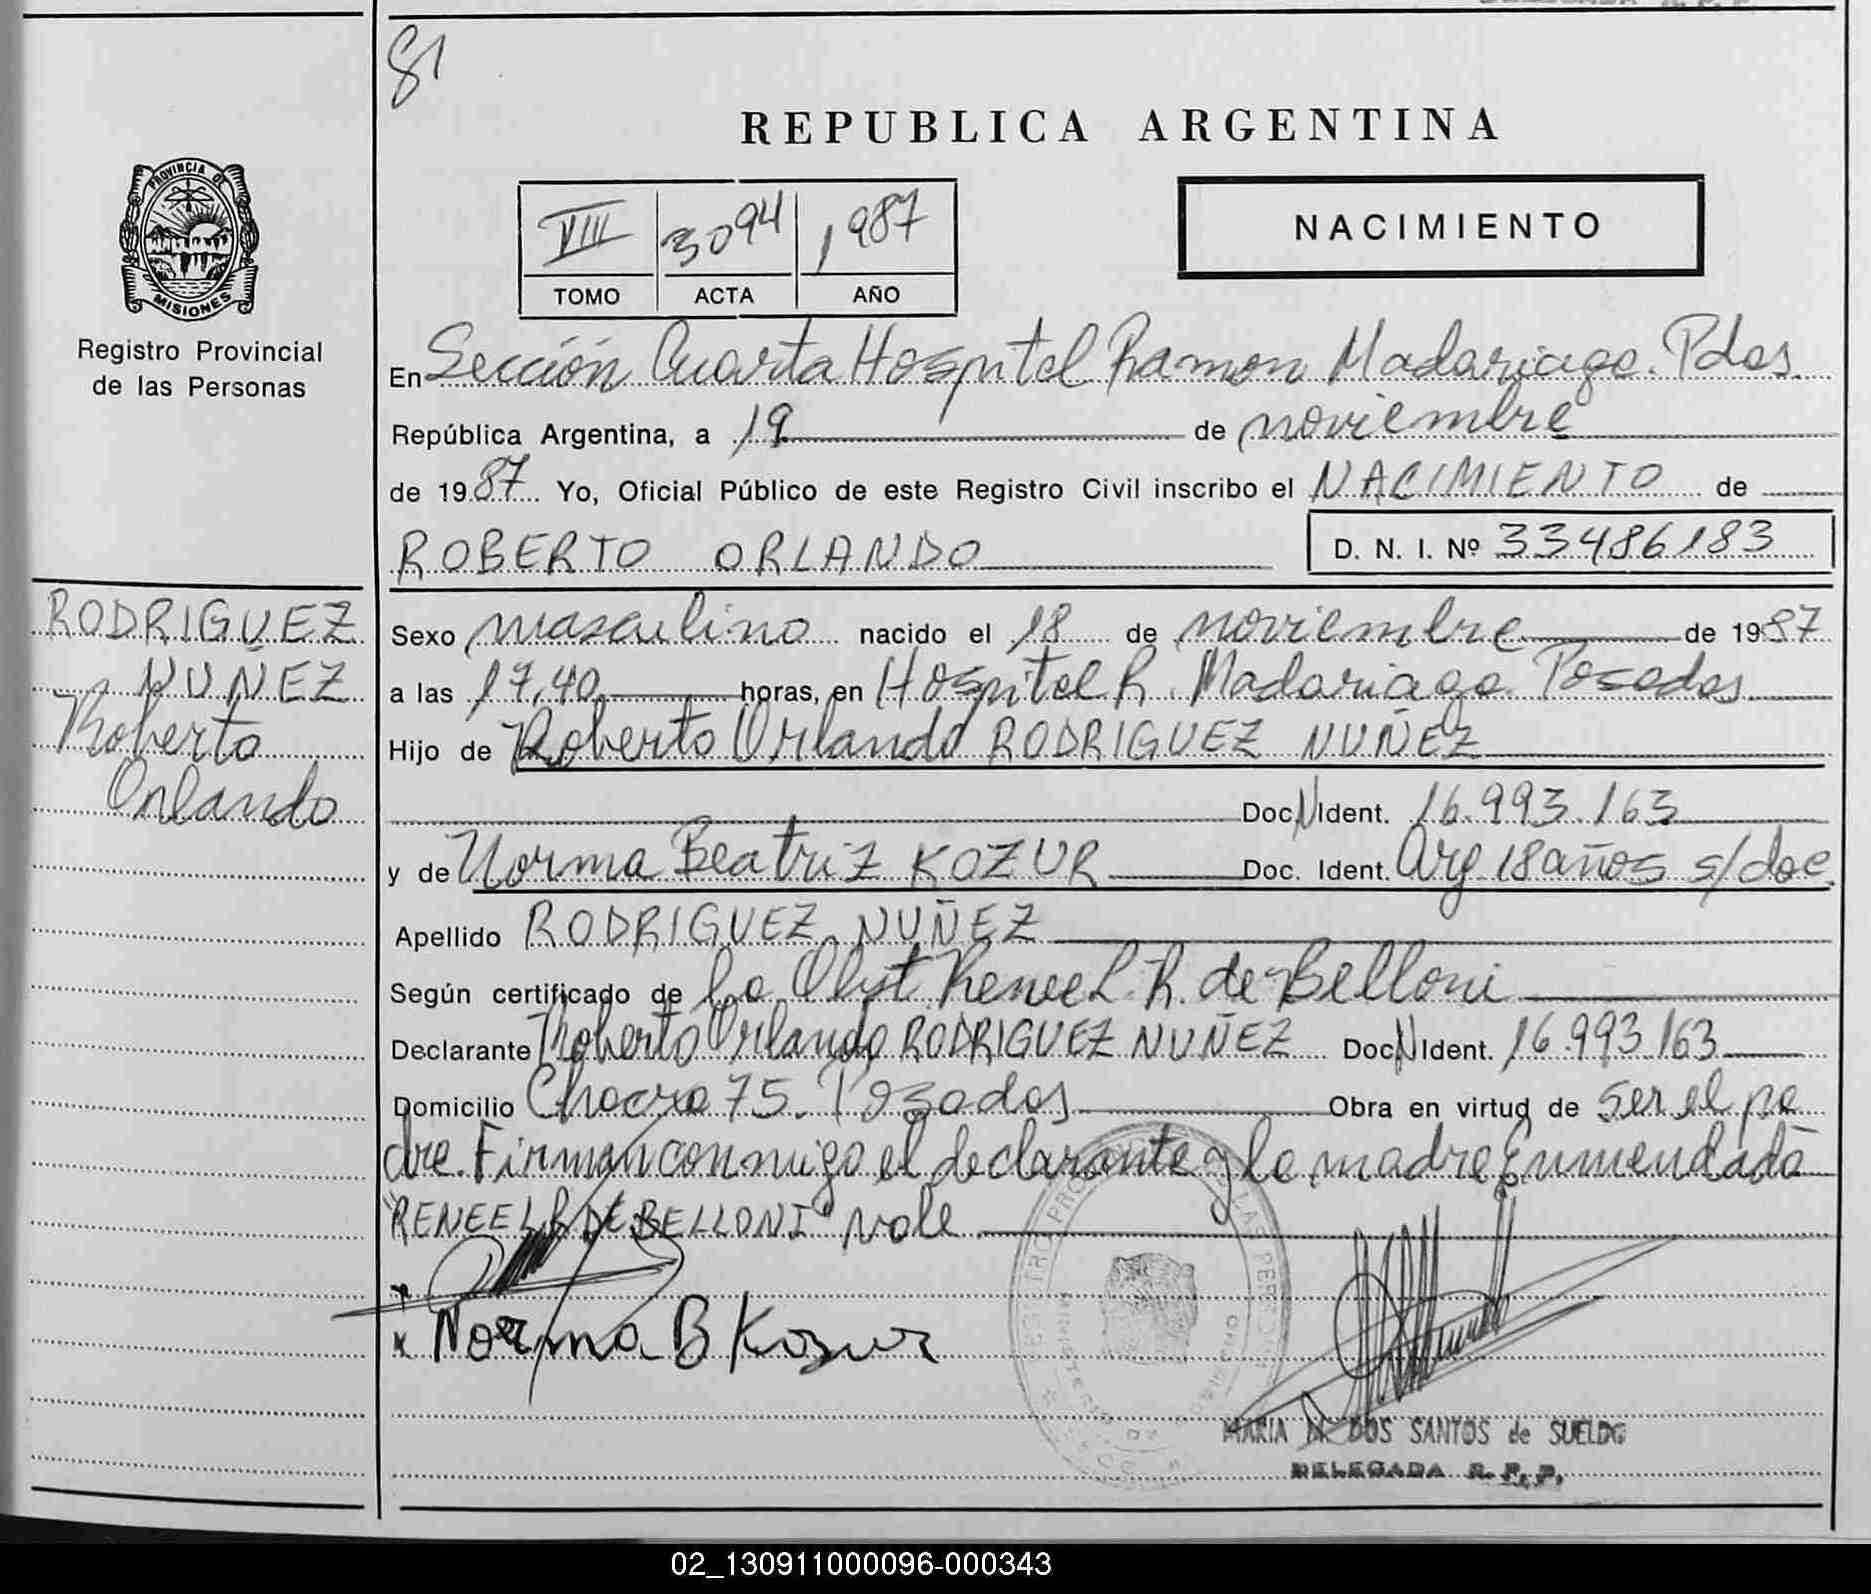 81
REPUBLICA ARGENTINA
PROVINCIA DE
MISIONES
Registro Provincial
de las Personas
VIII 3094 1987
TOMO ACTA AÑO
NACIMIENTO
En Sección Cuarta Hospital Ramon Madariaga. Pdas.
República Argentina, a 19 de noviembre
de 1987 Yo, Oficial Público de este Registro Civil inscribo el NACIMIENTO de
ROBERTO ORLANDO D. N. I. Nº 33486183
RODRIGUEZ
NUÑEZ
Roberto
Orlando
Sexo masculino nacido el 18 de noviembre de 1987
a las 17,40 horas, en Hospital R. Madariaga Posadas
Hijo de Roberto Orlando RODRIGUEZ NUÑEZ
Doc N Ident. 16.993.163
y de Norma Beatriz KOZUR Doc. Ident. Arg 18 años s/doc.
Apellido RODRIGUEZ NUÑEZ
Según certificado de la Obst Renee L. R. de Belloni
Declarante Roberto Orlando RODRIGUEZ NUÑEZ Doc N Ident. 16.993.163
Domicilio Chacra 75. Posadas Obra en virtud de ser el pa
dre. Firman conmigo el declarante y la madre Enmendado
"RENEE L R DE BELLONI" vale
x
x Norma B Kozur
MARIA DOS SANTOS de SUELDO
DELEGADA R. P. P.
02_130911000096-000343